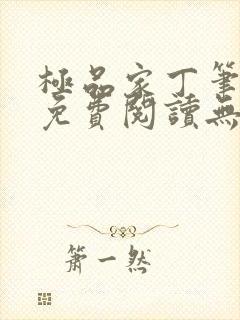 極品家丁筆
免費閱讀無
簫一然